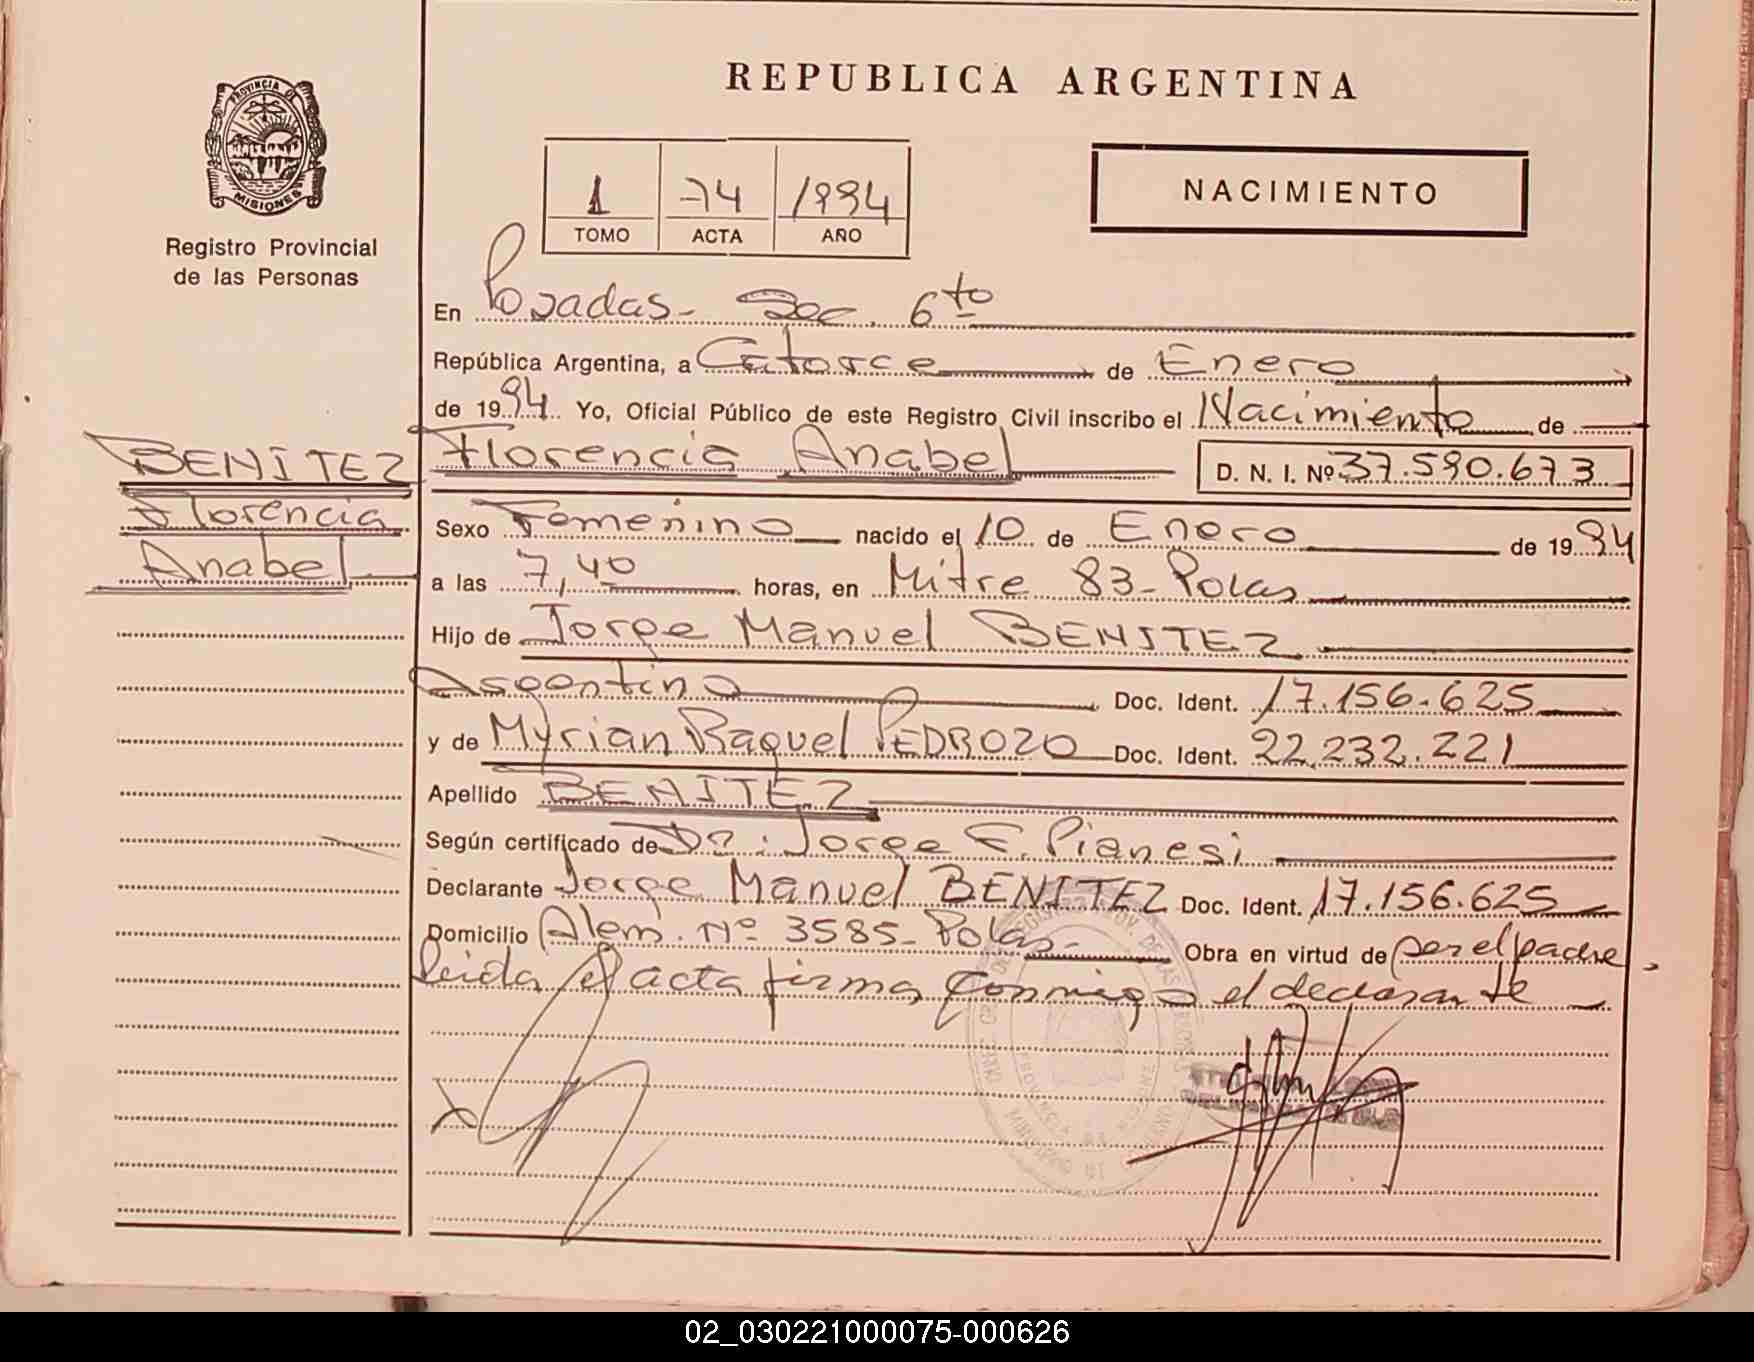 REPUBLICA ARGENTINA
PROVINCIA DE
MISIONES
Registro Provincial
de las Personas
1 74 1994
TOMO ACTA AÑO
NACIMIENTO
En Posadas - Sec. 6to
República Argentina, a Catorce de Enero
de 1994 Yo, Oficial Público de este Registro Civil inscribo el Nacimiento de
BENITEZ
Florencia
Anabel
Florencia Anabel D. N. I. Nº 37.590.673
Sexo Femenino nacido el 10 de Enero de 1994
a las 7,40 horas, en Mitre 83 - Pdas
Hijo de Jorge Manuel BENITEZ
Argentino Doc. Ident. 17.156.625
y de Myrian Raquel PEDROZO Doc. Ident. 22.232.221
Apellido BENITEZ
Según certificado de Dr. Jorge F. Pianesi
Declarante Jorge Manuel BENITEZ Doc. Ident. 17.156.625
Domicilio Alem Nº 3585 - Pdas - Obra en virtud de ser el padre
leida el acta firma conmigo el declarante
02_030221000075-000626